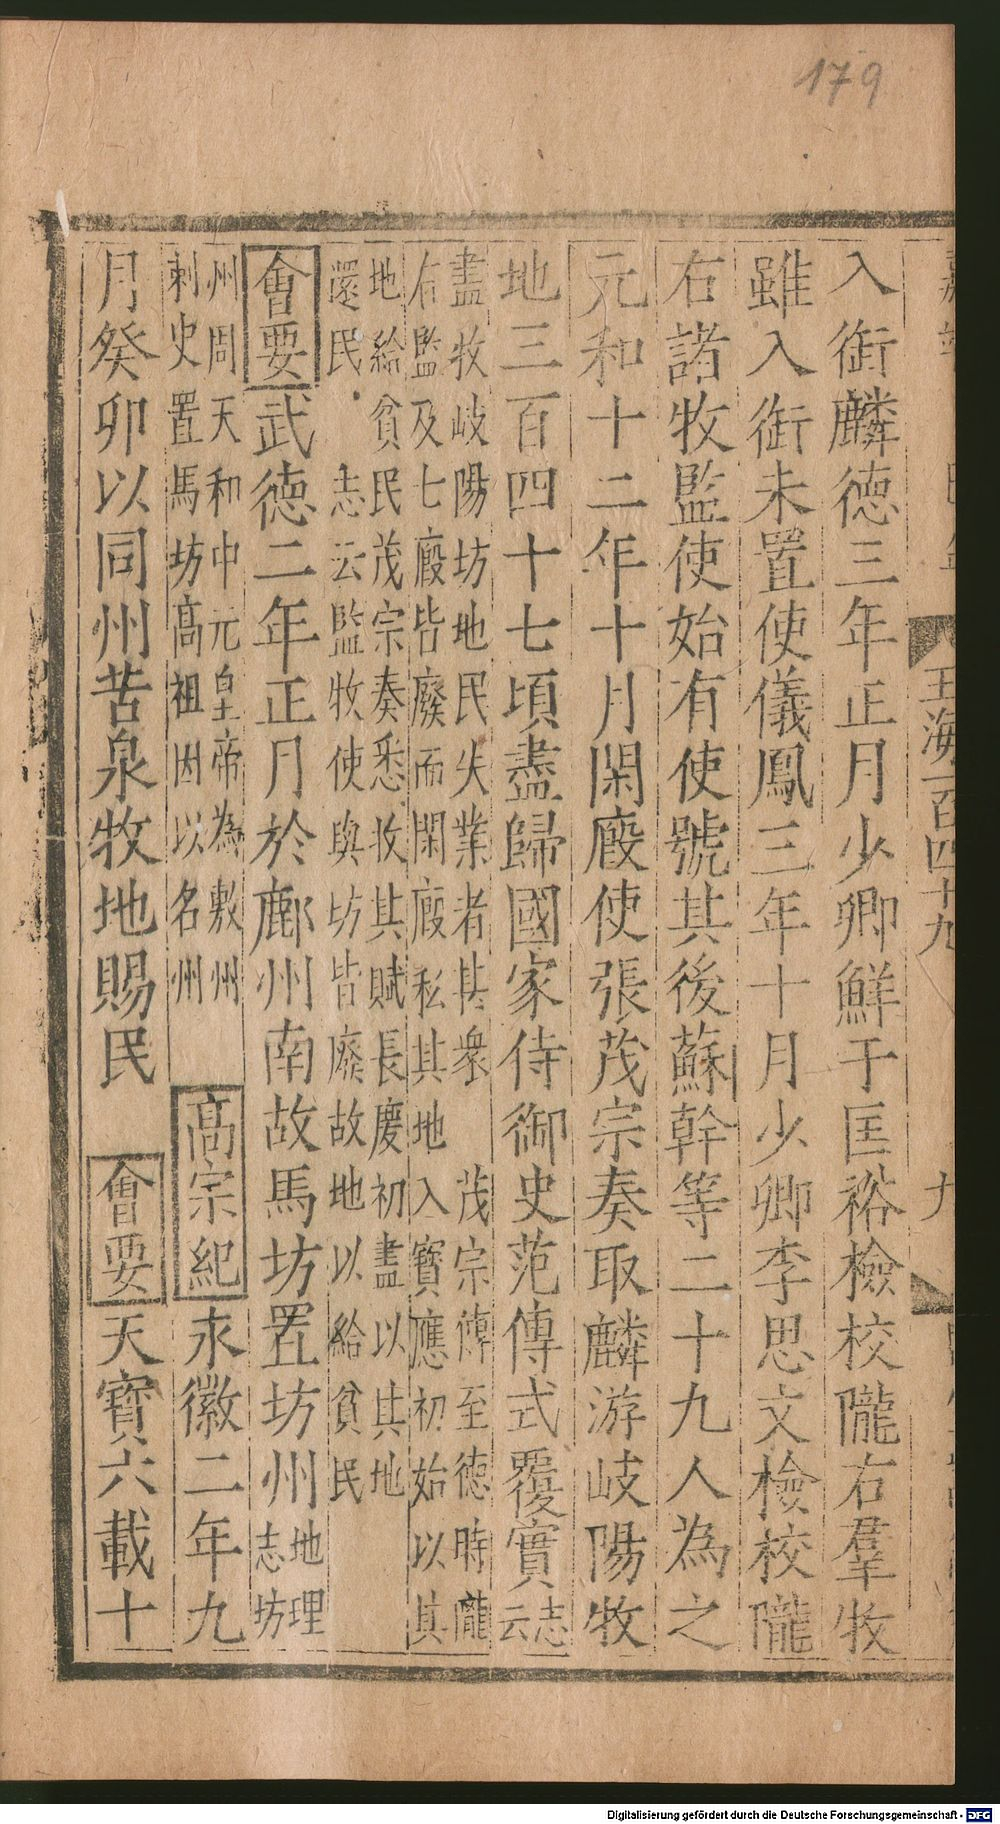 179
玉海一百四十九
九
入銜麟德三年正月少卿鮮于匡裕檢校隴右羣牧
雖入銜未置使儀鳳三年十月少卿李思文檢校隴
右諸牧監使始有使號其後蘇幹等二十九人為之
元和十二年十月閑廄使張茂宗奏取麟游岐陽牧
地三百四十七頃盡歸國家侍御史范傳式覆實志云
盡牧岐陽坊地民失業者其衆 茂宗傳至德時隴
右監及七廄皆廢而閑廄私其地入寶應初始以其
地給貧民茂宗奏悉收其賦長慶初盡以其地
還民 志云監牧使與坊皆廢故地以給貧民
會要武德二年正月於鄜州南故馬坊置坊州地理志坊
州周天和中元皇帝為敷州
刺史置馬坊高祖因以名州
高宗紀永徽二年九
月癸卯以同州苦泉牧地賜民 會要天寶六載十
Digitalisierung gefördert durch die Deutsche Forschungsgemeinschaft - DFG